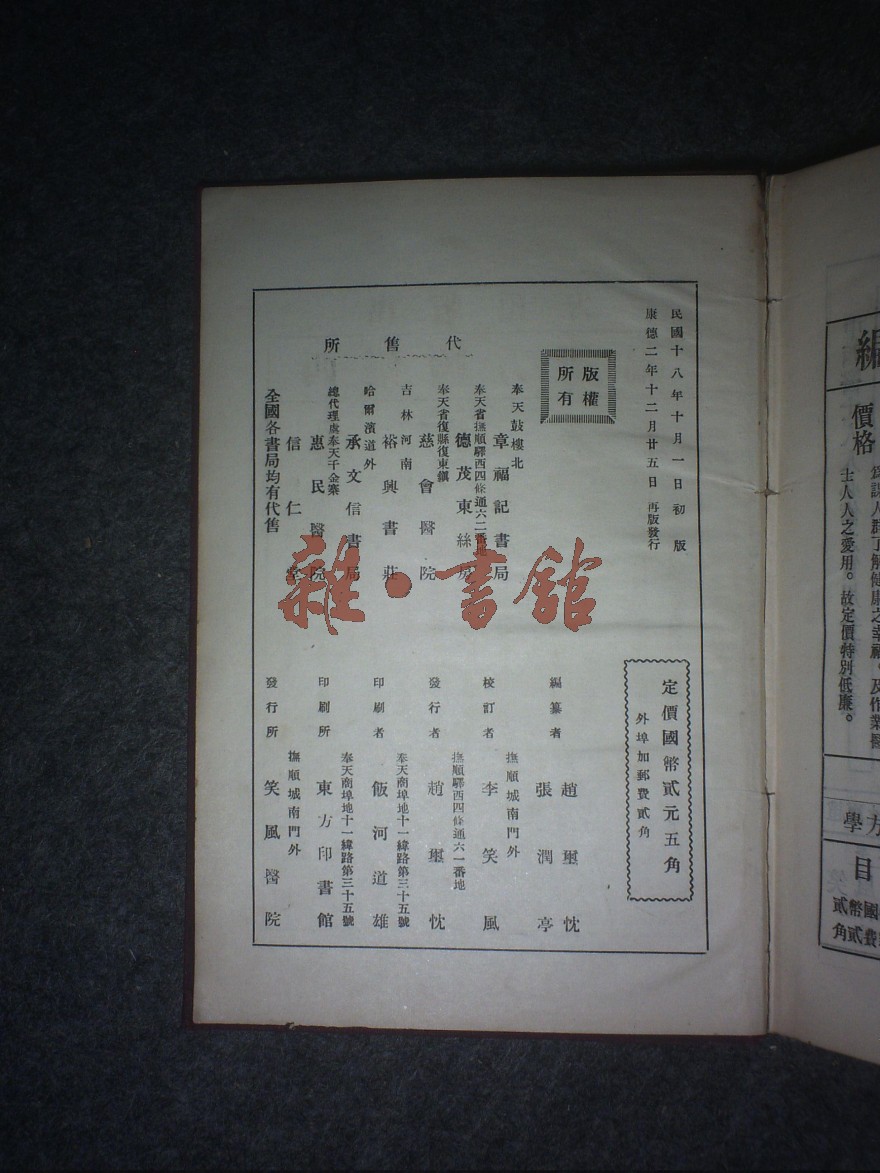 民國十八年十月一日初版
康德二年十二月廿五日 再版發行
版權
所有
定價國幣貳元五角
外埠加郵費貳角
代售所
奉天鼓樓北
章福記書局
奉天省撫順驛西四條通六二番地
德茂東絲房
奉天省復縣復東鎭
慈會醫院
吉林河南
裕興書莊
哈爾濱道外
承文信書局
總代理處奉天千金寨
惠民醫院
信仁堂
全國各書局均有代售
編纂者
趙璽忱
張潤亭
校訂者
撫順城南門外
李笑風
發行者
撫順驛西四條通六一番地
趙璽忱
印刷者
奉天商埠地十一緯路第三十五號
飯河道雄
印刷所
奉天商埠地十一緯路第三十五號
東方印書館
發行所
撫順城南門外
笑風醫院
雜·書館
編
價格
士人人之愛用。故定價特別低廉。
方學
目